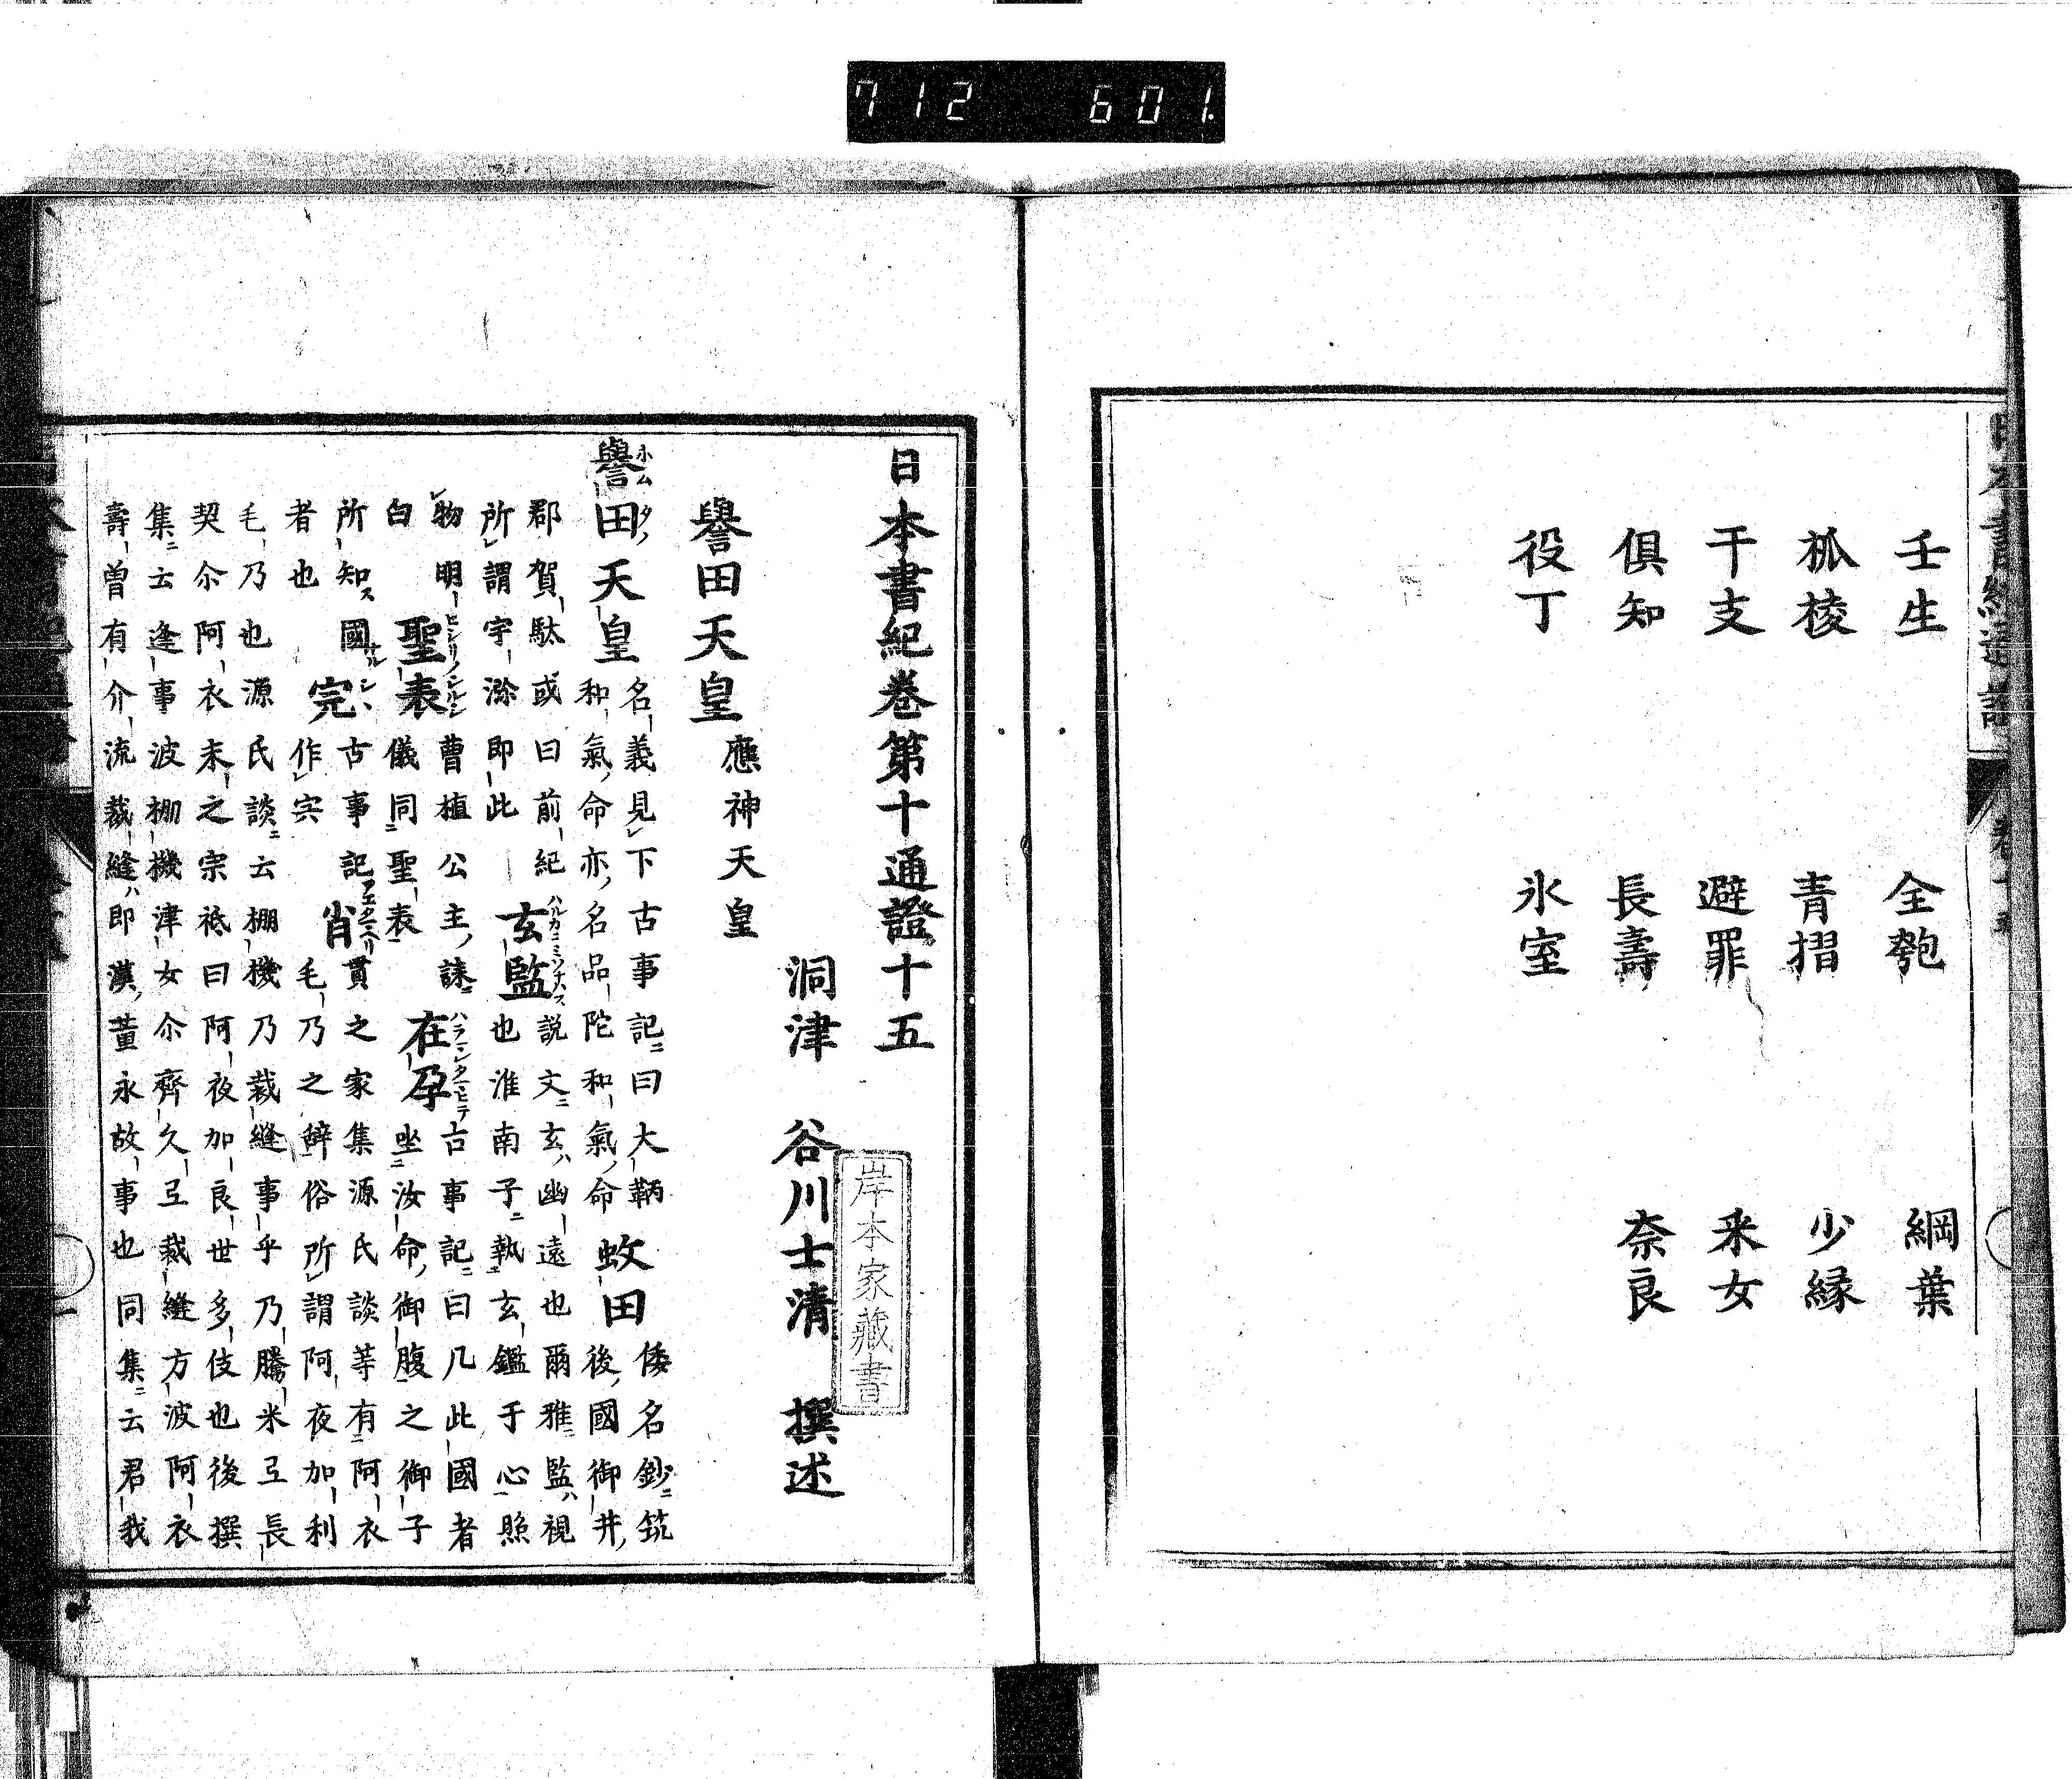 712 601.
壬生 全匏 綱葉
柧棱 青摺 少縁
干支 避罪 釆女
倶知 長壽 奈良
役丁 氷室
日本書紀巻第十通證十五
洞津 谷川士清 撰述
岸本家藏書
譽田天皇 應神天皇
譽田天皇 名義見下古事記ニ曰大鞆和氣命亦名品陀和氣命 蚊田 倭名鈔ニ筑後國御井
郡賀駄或曰前紀所謂宇㴃即此 玄監 説文ニ玄ハ幽遠也爾雅ニ監ハ視也淮南子ニ執玄鑑于心照
物明白 聖表 曹植公主誄ニ儀同聖表 在孕 古事記ニ曰凡此國者坐汝命御腹之御子
所知國者也 完 古事記作宍 肖 貫之家集源氏談等有阿衣毛乃之辭俗所謂阿夜加利
毛乃也源氏談ニ云棚機乃裁縫事乎乃騰米弖長
契尒阿衣末之宗祇曰阿夜加良世多伎也後撰
集ニ云逢事波棚機津女尒齊久弖裁縫方波阿衣
壽曽有介流裁縫ハ即漢董永故事也同集ニ云君我